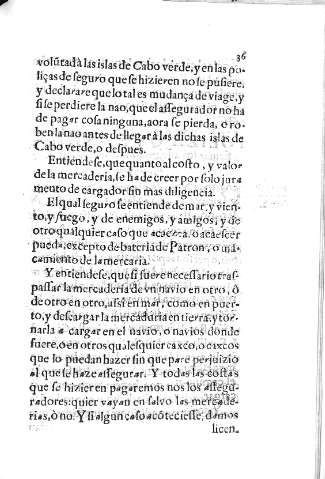 36
volūtad à las islas de Cabo verde, y en las po-
liças de seguro que se hizieren no se pusiere,
y declarare que lo tal es mudança de viage, y
si se perdiere la nao, que el assegurador no ha
de pagar cosa ninguna, aora se pierda, o ro-
ben la nao antes de llegar à las dichas islas de
Cabo verde, o despues.
Entiendese, que quanto al costo, y valor
de la mercaderia, se ha de creer por solo jura
mento de cargador sin mas diligencia.
El qual seguro se entiende de mar, y vien-
to, y fuego, y de enemigos, y amigos, y de
otro qualquier caso que acaezca, o acaescer
pueda, excepto de bateria de Patron, o
camiento de la mercaria.
Y entiendese, que si fuere necessario tras-
passar la mercaderia de vn navio en otro, ò
de otro en otro, assi en mar, como en puer-
to, y descargar la mercaduria en tierra, y tor-
narla a cargar en el navio, o navios donde
fuere, o en otros qualesquier caxco, o caxcos
que lo puedan hazer sin que pare perjuizio
al que se haze assegurar. Y todas las costas
que se hizieren pagaremos nos los assegu-
radores: quier vayan en salvo las mercade-
rias, ò no. Y si algun caso acōteciesse, damos
licen-